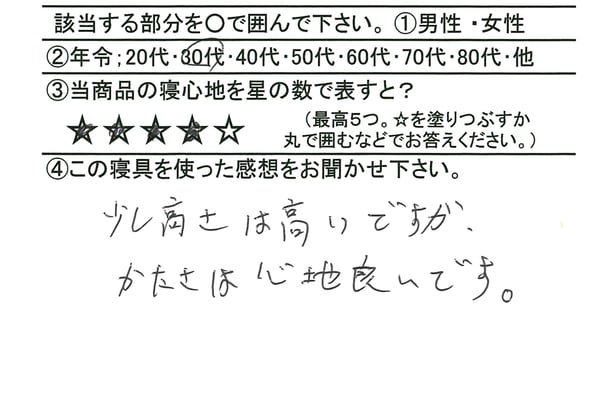 該当する部分を〇で囲んで下さい。①男性・女性
②年令；20代・30代・40代・50代・60代・70代・80代・他
③当商品の寝心地を星の数で表すと？
★★★★☆
（最高５つ。☆を塗りつぶすか
丸で囲むなどでお答えください。）
④この寝具を使った感想をお聞かせ下さい。
少し高さは高いですが、
かたさは心地良いです。